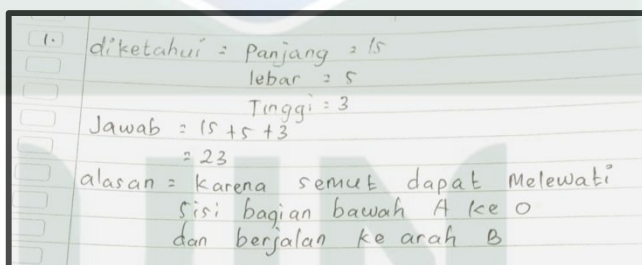 1.) diketahui = Panjang = 15
lebar = 5
Tinggi = 3
Jawab = 15 + 5 + 3
= 23
alasan = Karena semut dapat Melewati
sisi bagian bawah A ke O
dan berjalan ke arah B